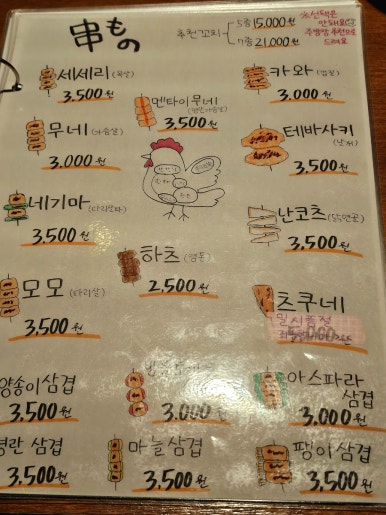 串もの
추천꼬치 5종 15,000원
7종 21,000원
초선택은
안돼요
주방장 추천으로
드려요
세세리 (목살)
3,500원
멘타이무네
3,500원
카와 (껍질)
3,000원
무네 (가슴살)
3,000원
테바사키 (날개)
3,500원
네기마 (다리살대파)
3,500원
하츠 (염통)
2,500원
난코츠 (무릎연골)
3,500원
모모 (다리살)
3,500원
츠쿠네
일시품절
양송이삼겹
3,500원
3,000원
아스파라
삼겹
3,000원
명란 삼겹
3,500원
마늘삼겹
3,500원
팽이삼겹
3,500원